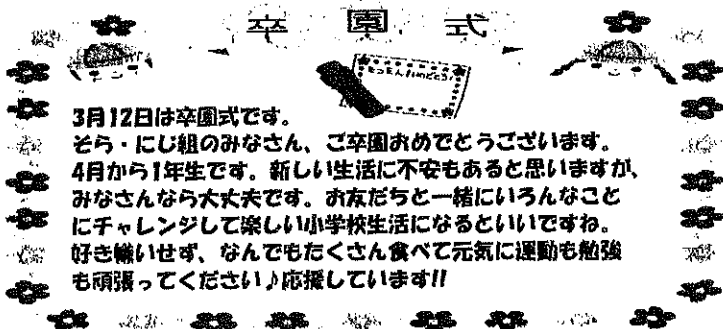 卒園式
そつえんおめでとう
3月12日は卒園式です。
そら・にじ組のみなさん、ご卒園おめでとうございます。
4月から1年生です。新しい生活に不安もあると思いますが、
みなさんなら大丈夫です。お友だちと一緒にいろんなこと
にチャレンジして楽しい小学校生活になるといいですね。
好き嫌いせず、なんでもたくさん食べて元気に運動も勉強
も頑張ってください♪応援しています!!